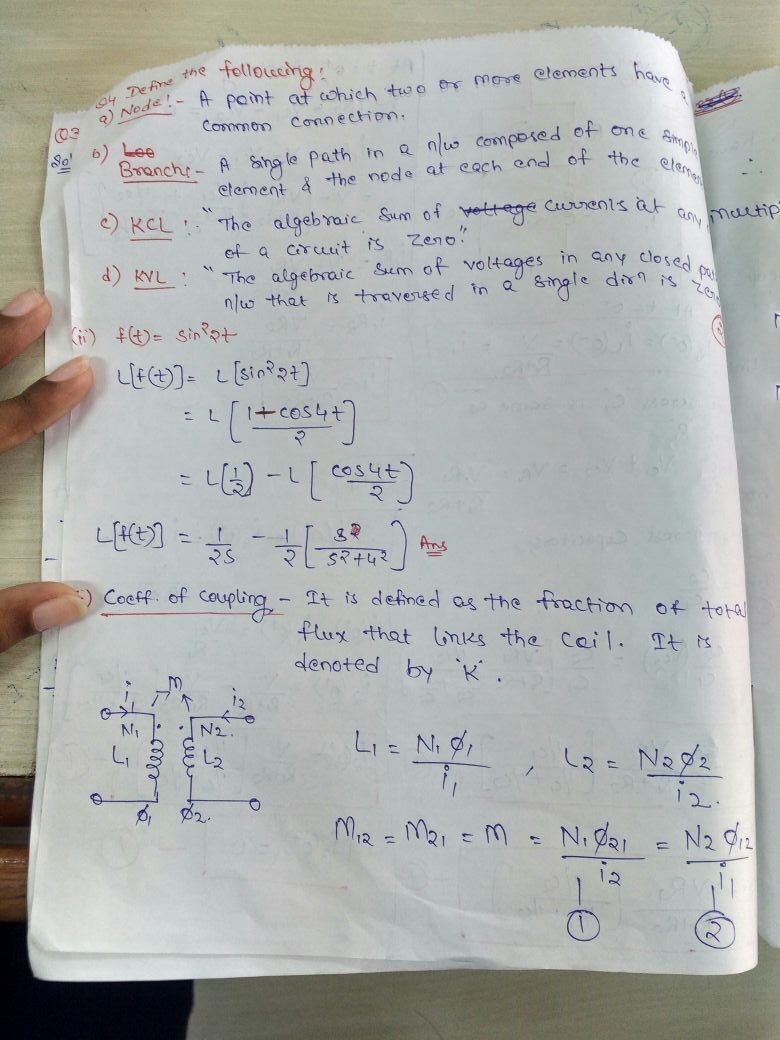 Q4 Define the following:
Q3
Sol
a) Node:- A point at which two or more elements have a
common connection.
b) Loo
Branch:- A single path in a n/w composed of one simple
element & the node at each end of the element
c) KCL : "The algebraic sum of voltage currents at any
of a circuit is zero."
multip
d) KVL : "The algebraic sum of voltages in any closed path
n/w that is traversed in a single dirn is zero
(ii) f(t) = sin²2t
L[f(t)] = L[sin²2t]
= L[(1-cos4t)/2]
= L(1/2) - L[cos4t/2]
L[f(t)] = 1/2s - 1/2[s/(s²+4²)] Ans
Coeff. of Coupling - It is defined as the fraction of total
flux that links the coil. It is
denoted by 'K'.
i1 M i2
N1 N2.
L1 L2
φ1 φ2.
L1 = N1φ1/i1 , L2 = N2φ2/i2.
M12 = M21 = M = N1φ21/i2 = N2φ12/i1
1 2